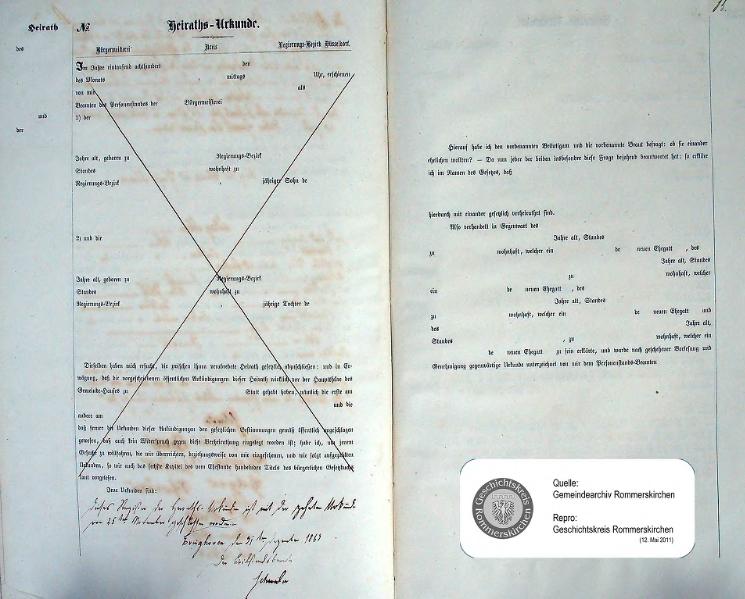 Heirath
№
Heiraths-Urkunde.
des
Bürgermeisterei Kreis Regierungs-Bezirk Düsseldorf.
Im Jahre eintausend achthundert den
des Monats mittags Uhr, erschienen
von mir als
Beamten des Personenstandes der Bürgermeisterei
und
1) der
der
Jahre alt, geboren zu Regierungs-Bezirk
Standes wohnhaft zu
Regierungs-Bezirk , jähriger Sohn de
2) und die
Jahre alt, geboren zu Regierungs-Bezirk
Standes wohnhaft zu
Regierungs-Bezirk , jährige Tochter de
Dieselben haben mich ersucht, die zwischen ihnen verabredete Heirath gesetzlich abzuschließen; und in Er-
wägung, daß die vorgeschriebenen öffentlichen Ankündigungen dieser Heirath wirklich vor der Hauptthüre des
Gemeinde-Hauses zu Statt gehabt haben, nämlich die erste am
und die
andere am
daß ferner die Urkunden dieser Ankündigungen den gesetzlichen Bestimmungen gemäß öffentlich angeschlagen
gewesen, daß auch kein Widerspruch gegen diese Verheirathung eingelegt worden ist; habe ich, um jenem
Gesuche zu willfahren, die mir überreichten, beziehungsweise von mir eingesehenen, und wie folgt aufgezählten
Urkunden, so wie auch das sechste Kapitel des vom Ehestande handelnden Titels des bürgerlichen Gesetzbuches
laut vorgelesen.
Jene Urkunden sind:
dieses Register der Heiraths-Urkunde ist mit der zehnten Urkunde
vom 25ten November geschlossen worden.
den 1863
Der Civilstandsbeamte
Hierauf habe ich den vorbenannten Bräutigam und die vorbenannte Braut befragt: ob sie einander
ehelichen wollten? — Da nun jeder der beiden insbesondere diese Frage bejahend beantwortet hat: so erkläre
ich im Namen des Gesetzes, daß
hierdurch mit einander gesetzlich verheirathet sind.
Also verhandelt in Gegenwart des
Jahre alt, Standes
zu wohnhaft, welcher ein de neuen Ehegatt , des
Jahre alt, Standes
zu wohnhaft, welcher
ein de neuen Ehegatt , des
Jahre alt, Standes
zu wohnhaft, welcher ein de neuen Ehegatt und
des Jahre alt,
Standes , zu wohnhaft, welcher ein
de neuen Ehegatt zu sein erklärte, und wurde nach geschehener Vorlesung und
Genehmigung gegenwärtige Urkunde unterzeichnet von mir dem Personenstands-Beamten
Geschichtskreis
Rommerskirchen
Quelle:
Gemeindearchiv Rommerskirchen
Repro:
Geschichtskreis Rommerskirchen
(12. Mai 2011)